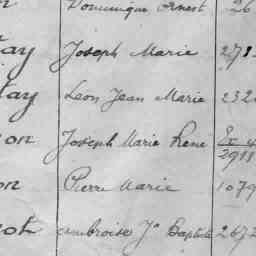 Dominique Ernest 26
ay Joseph Marie 271
tay Leon Jean Marie 232
on Joseph Marie René 2911
on Pierre Marie 1079
ot Ambroise Jn Baptiste 2672